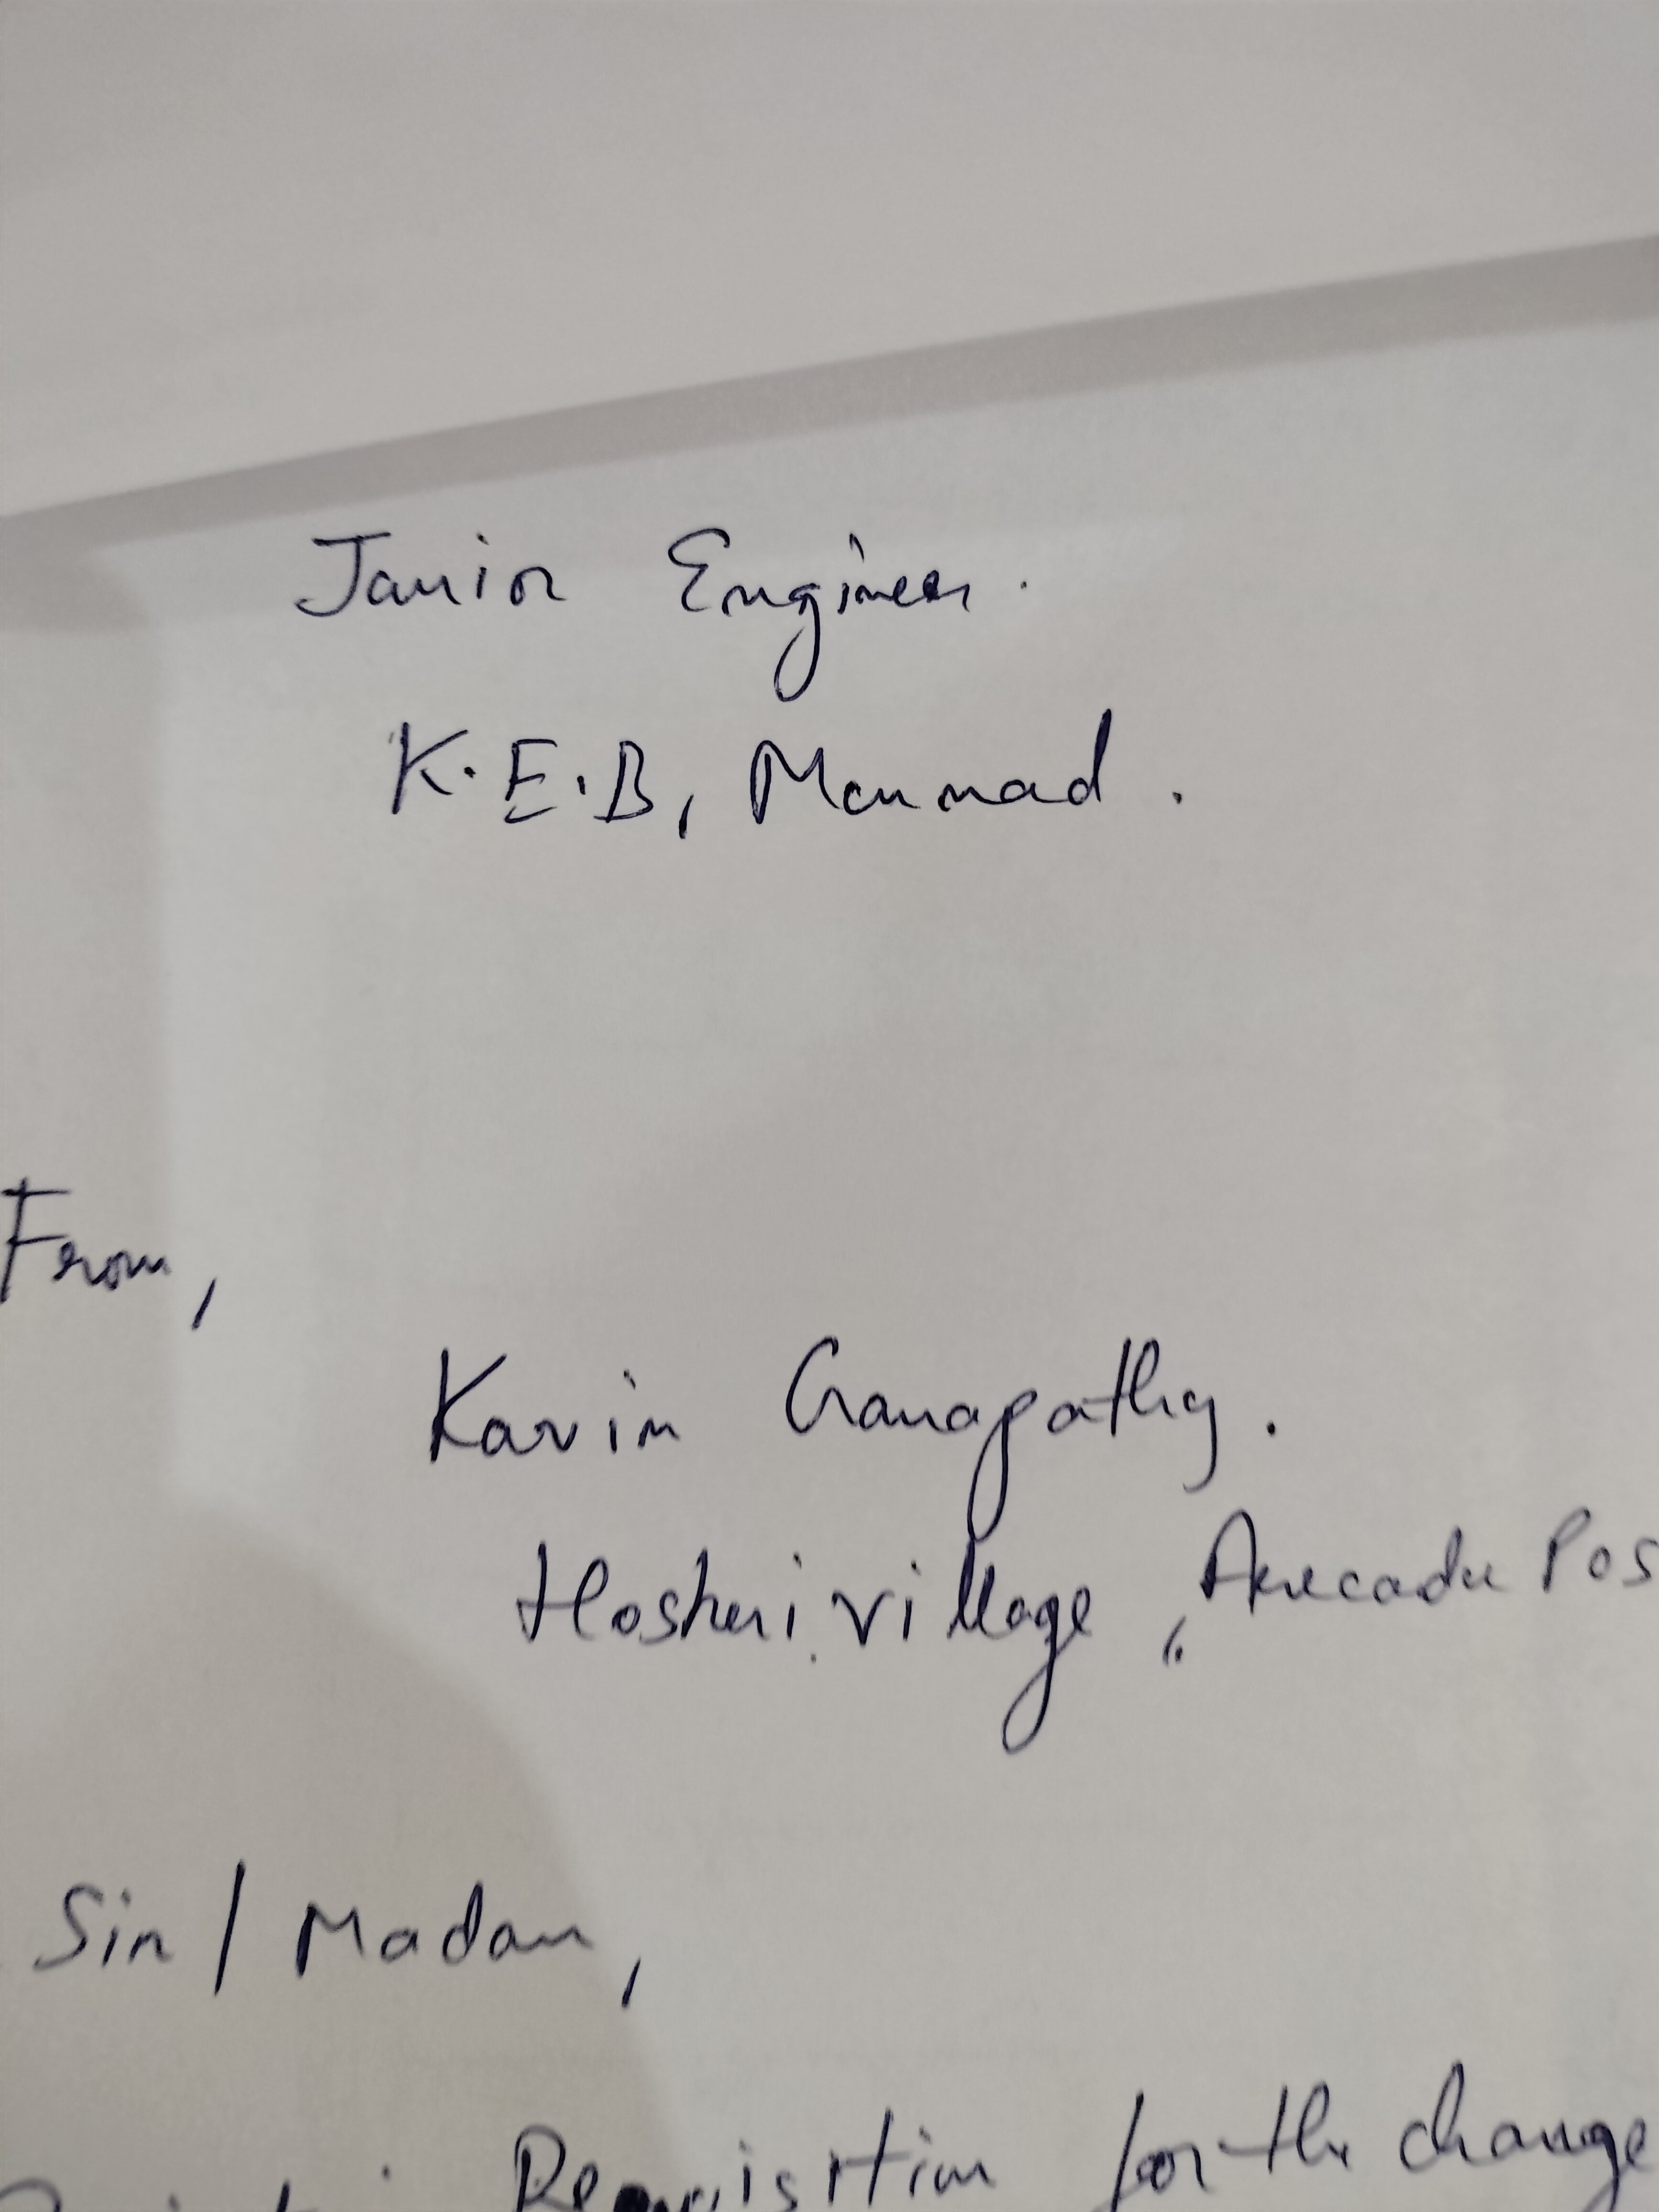 Junior Engineer.
K.E.B, Murnad.
From,
Kavin Ganapathy.
Hoskeri village, Arecadu Pos
Sir / Madam,
Requisition for the change